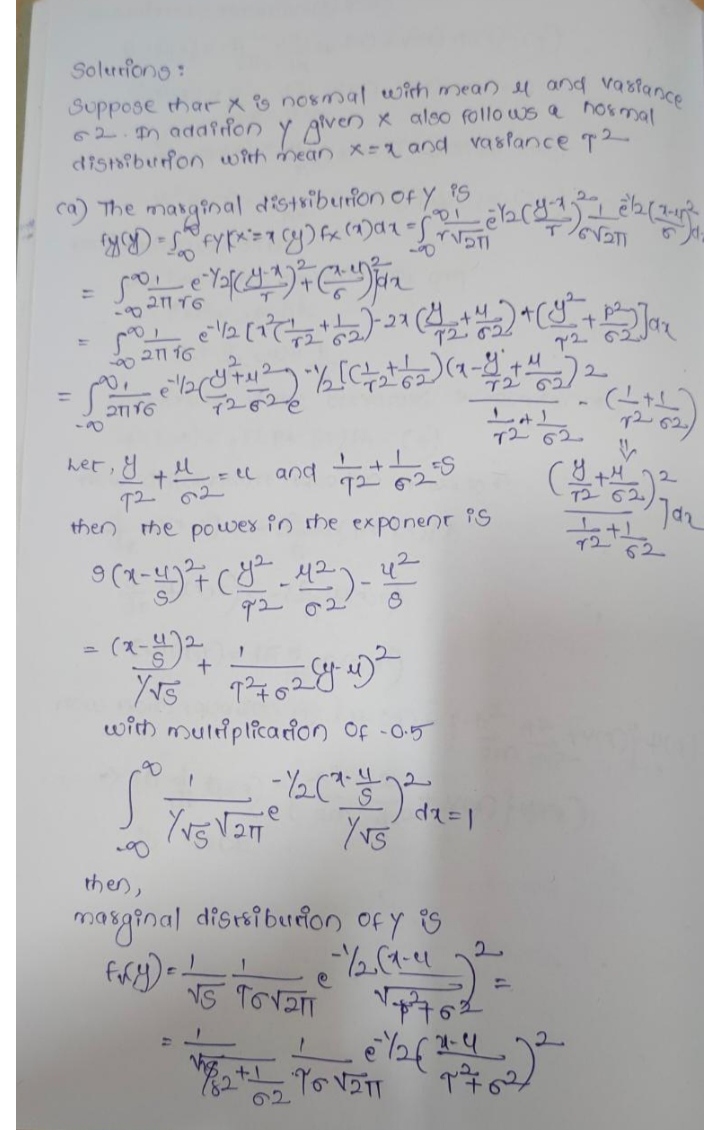 Solutions:
Suppose that x is normal with mean μ and variance
σ2. In addition y given x also follows a normal
distribution with mean x=x and variance τ2
(a) The marginal distribution of Y is
fy(y) = ∫_{-∞}^{∞} fY|x=x (y) fx (x) dx = ∫_{-∞}^{∞} 1/(τ√2π) e^{-1/2 ((y-x)/τ)^2} 1/(σ√2π) e^{-1/2 ((x-μ)/σ)^2} dx
= ∫_{-∞}^{∞} 1/(2πτσ) e^{-1/2 [((y-x)/τ)^2 + ((x-μ)/σ)^2]} dx
= ∫_{-∞}^{∞} 1/(2πτσ) e^{-1/2 [x^2 (1/τ2 + 1/σ2) - 2x (y/τ2 + μ/σ2) + (y^2/τ2 + μ2/σ2)]} dx
= ∫_{-∞}^{∞} 1/(2πτσ) e^{-1/2 (y^2/τ2 + μ2/σ2)} e^{-1/2 [(1/τ2 + 1/σ2) (x - (y/τ2 + μ/σ2)/(1/τ2 + 1/σ2))2 - (1/τ2 + 1/σ2)
⇓
Let, y/τ2 + μ/σ2 = u and 1/τ2 + 1/σ2 = S
(y/τ2 + μ/σ2)^2/(1/τ2 + 1/σ2) ] dx
then the power in the exponent is
s (x - u/s)^2 + (y^2/τ2 - μ2/σ2) - u^2/s
= (x - u/s)2/(1/√s) + 1/(τ2+σ2) (y-μ)^2
with multiplication of -0.5
∫_{-∞}^{∞} 1/(1/√s √2π) e^{-1/2 ((x - u/s)/(1/√s))^2} dx = 1
then,
marginal distribution of Y is
fy(y) = 1/√s 1/(τσ√2π) e^{-1/2 ((x-μ)/√(τ2+σ2))^2} =
= 1/√(1/τ2 + 1/σ2) 1/(τσ√2π) e^{-1/2 ((x-μ)/(τ2+σ2))^2}